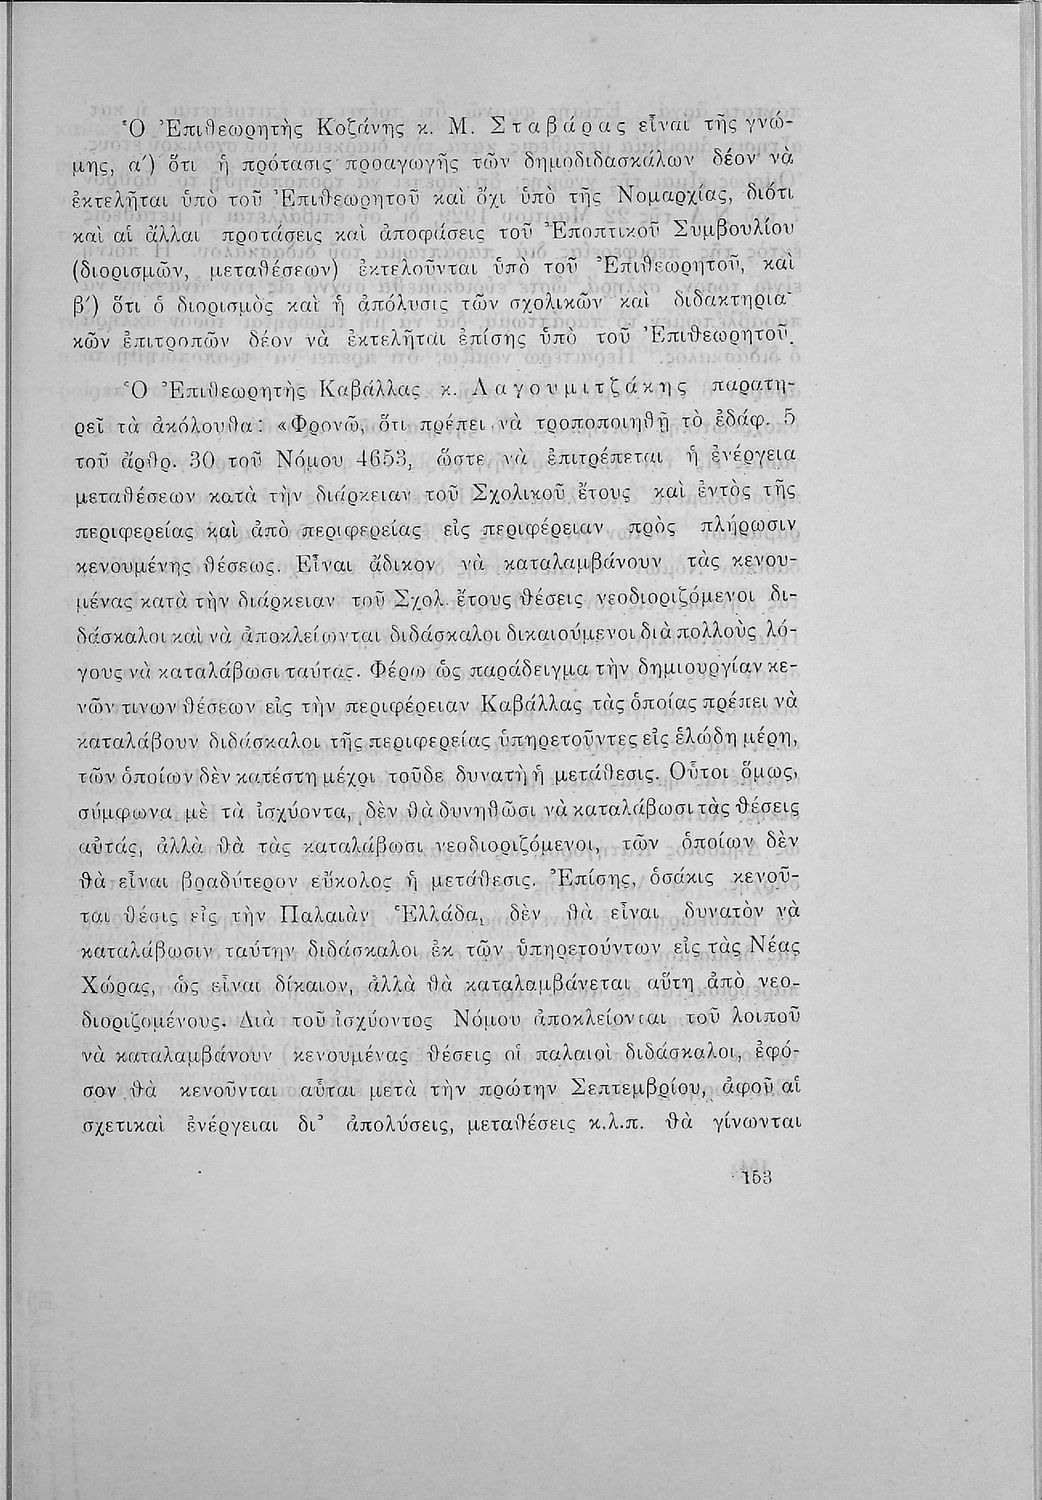 Ὁ Ἐπιθεωρητὴς Κοζάνης κ. Μ. Σταβάρας εἶναι τῆς γνώ-
μης, α΄) ὅτι ἡ πρότασις προαγωγῆς τῶν δημοδιδασκάλων δέον νὰ
ἐκτελῆται ὑπὸ τοῦ Ἐπιθεωρητοῦ καὶ ὄχι ὑπὸ τῆς Νομαρχίας, διότι
καὶ αἱ ἄλλαι προτάσεις καὶ ἀποφάσεις τοῦ Ἐποπτικοῦ Συμβουλίου
(διορισμῶν, μεταθέσεων) ἐκτελοῦνται ὑπὸ τοῦ Ἐπιθεωρητοῦ, καὶ
β΄) ὅτι ὁ διορισμὸς καὶ ἡ ἀπόλυσις τῶν σχολικῶν καὶ διδακτηρια-
κῶν ἐπιτροπῶν δέον νὰ ἐκτελῆται ἐπίσης ὑπὸ τοῦ Ἐπιθεωρητοῦ.
Ὁ Ἐπιθεωρητὴς Καβάλλας κ. Λαγουμιτζάκης παρατη-
ρεῖ τὰ ἀκόλουθα: «Φρονῶ, ὅτι πρέπει νὰ τροποποιηθῇ τὸ ἐδάφ. 5
τοῦ ἄρθρ. 30 τοῦ Νόμου 4653, ὥστε νὰ ἐπιτρέπεται ἡ ἐνέργεια
μεταθέσεων κατὰ τὴν διάρκειαν τοῦ Σχολικοῦ ἔτους καὶ ἐντὸς τῆς
περιφερείας καὶ ἀπὸ περιφερείας εἰς περιφέρειαν πρὸς πλήρωσιν
κενουμένης θέσεως. Εἶναι ἄδικον νὰ καταλαμβάνουν τὰς κενου-
μένας κατὰ τὴν διάρκειαν τοῦ Σχολ. ἔτους θέσεις νεοδιοριζόμενοι δι-
δάσκαλοι καὶ νὰ ἀποκλείωνται διδάσκαλοι δικαιούμενοι διὰ πολλοὺς λό-
γους νὰ καταλάβωσι ταύτας. Φέρω ὡς παράδειγμα τὴν δημιουργίαν κε-
νῶν τινων θέσεων εἰς τὴν περιφέρειαν Καβάλλας τὰς ὁποίας πρέπει νὰ
καταλάβουν διδάσκαλοι τῆς περιφερείας ὑπηρετοῦντες εἰς ἑλώδη μέρη,
τῶν ὁποίων δὲν κατέστη μέχρι τοῦδε δυνατὴ ἡ μετάθεσις. Οὗτοι ὅμως,
σύμφωνα μὲ τὰ ἰσχύοντα, δὲν θὰ δυνηθῶσι νὰ καταλάβωσι τὰς θέσεις
αὐτάς, ἀλλὰ θὰ τὰς καταλάβωσι νεοδιοριζόμενοι, τῶν ὁποίων δὲν
θὰ εἶναι βραδύτερον εὔκολος ἡ μετάθεσις. Ἐπίσης, ὁσάκις κενοῦ-
ται θέσις εἰς τὴν Παλαιὰν Ἑλλάδα, δὲν θὰ εἶναι δυνατὸν νὰ
καταλάβωσιν ταύτην διδάσκαλοι ἐκ τῶν ὑπηρετούντων εἰς τὰς Νέας
Χώρας, ὡς εἶναι δίκαιον, ἀλλὰ θὰ καταλαμβάνεται αὕτη ἀπὸ νεο-
διοριζομένους. Διὰ τοῦ ἰσχύοντος Νόμου ἀποκλείονται τοῦ λοιποῦ
νὰ καταλαμβάνουν κενουμένας θέσεις οἱ παλαιοὶ διδάσκαλοι, ἐφό-
σον θὰ κενοῦνται αὗται μετὰ τὴν πρώτην Σεπτεμβρίου, ἀφοῦ αἱ
σχετικαὶ ἐνέργειαι δι' ἀπολύσεις, μεταθέσεις κ.λ.π. θὰ γίνωνται
153